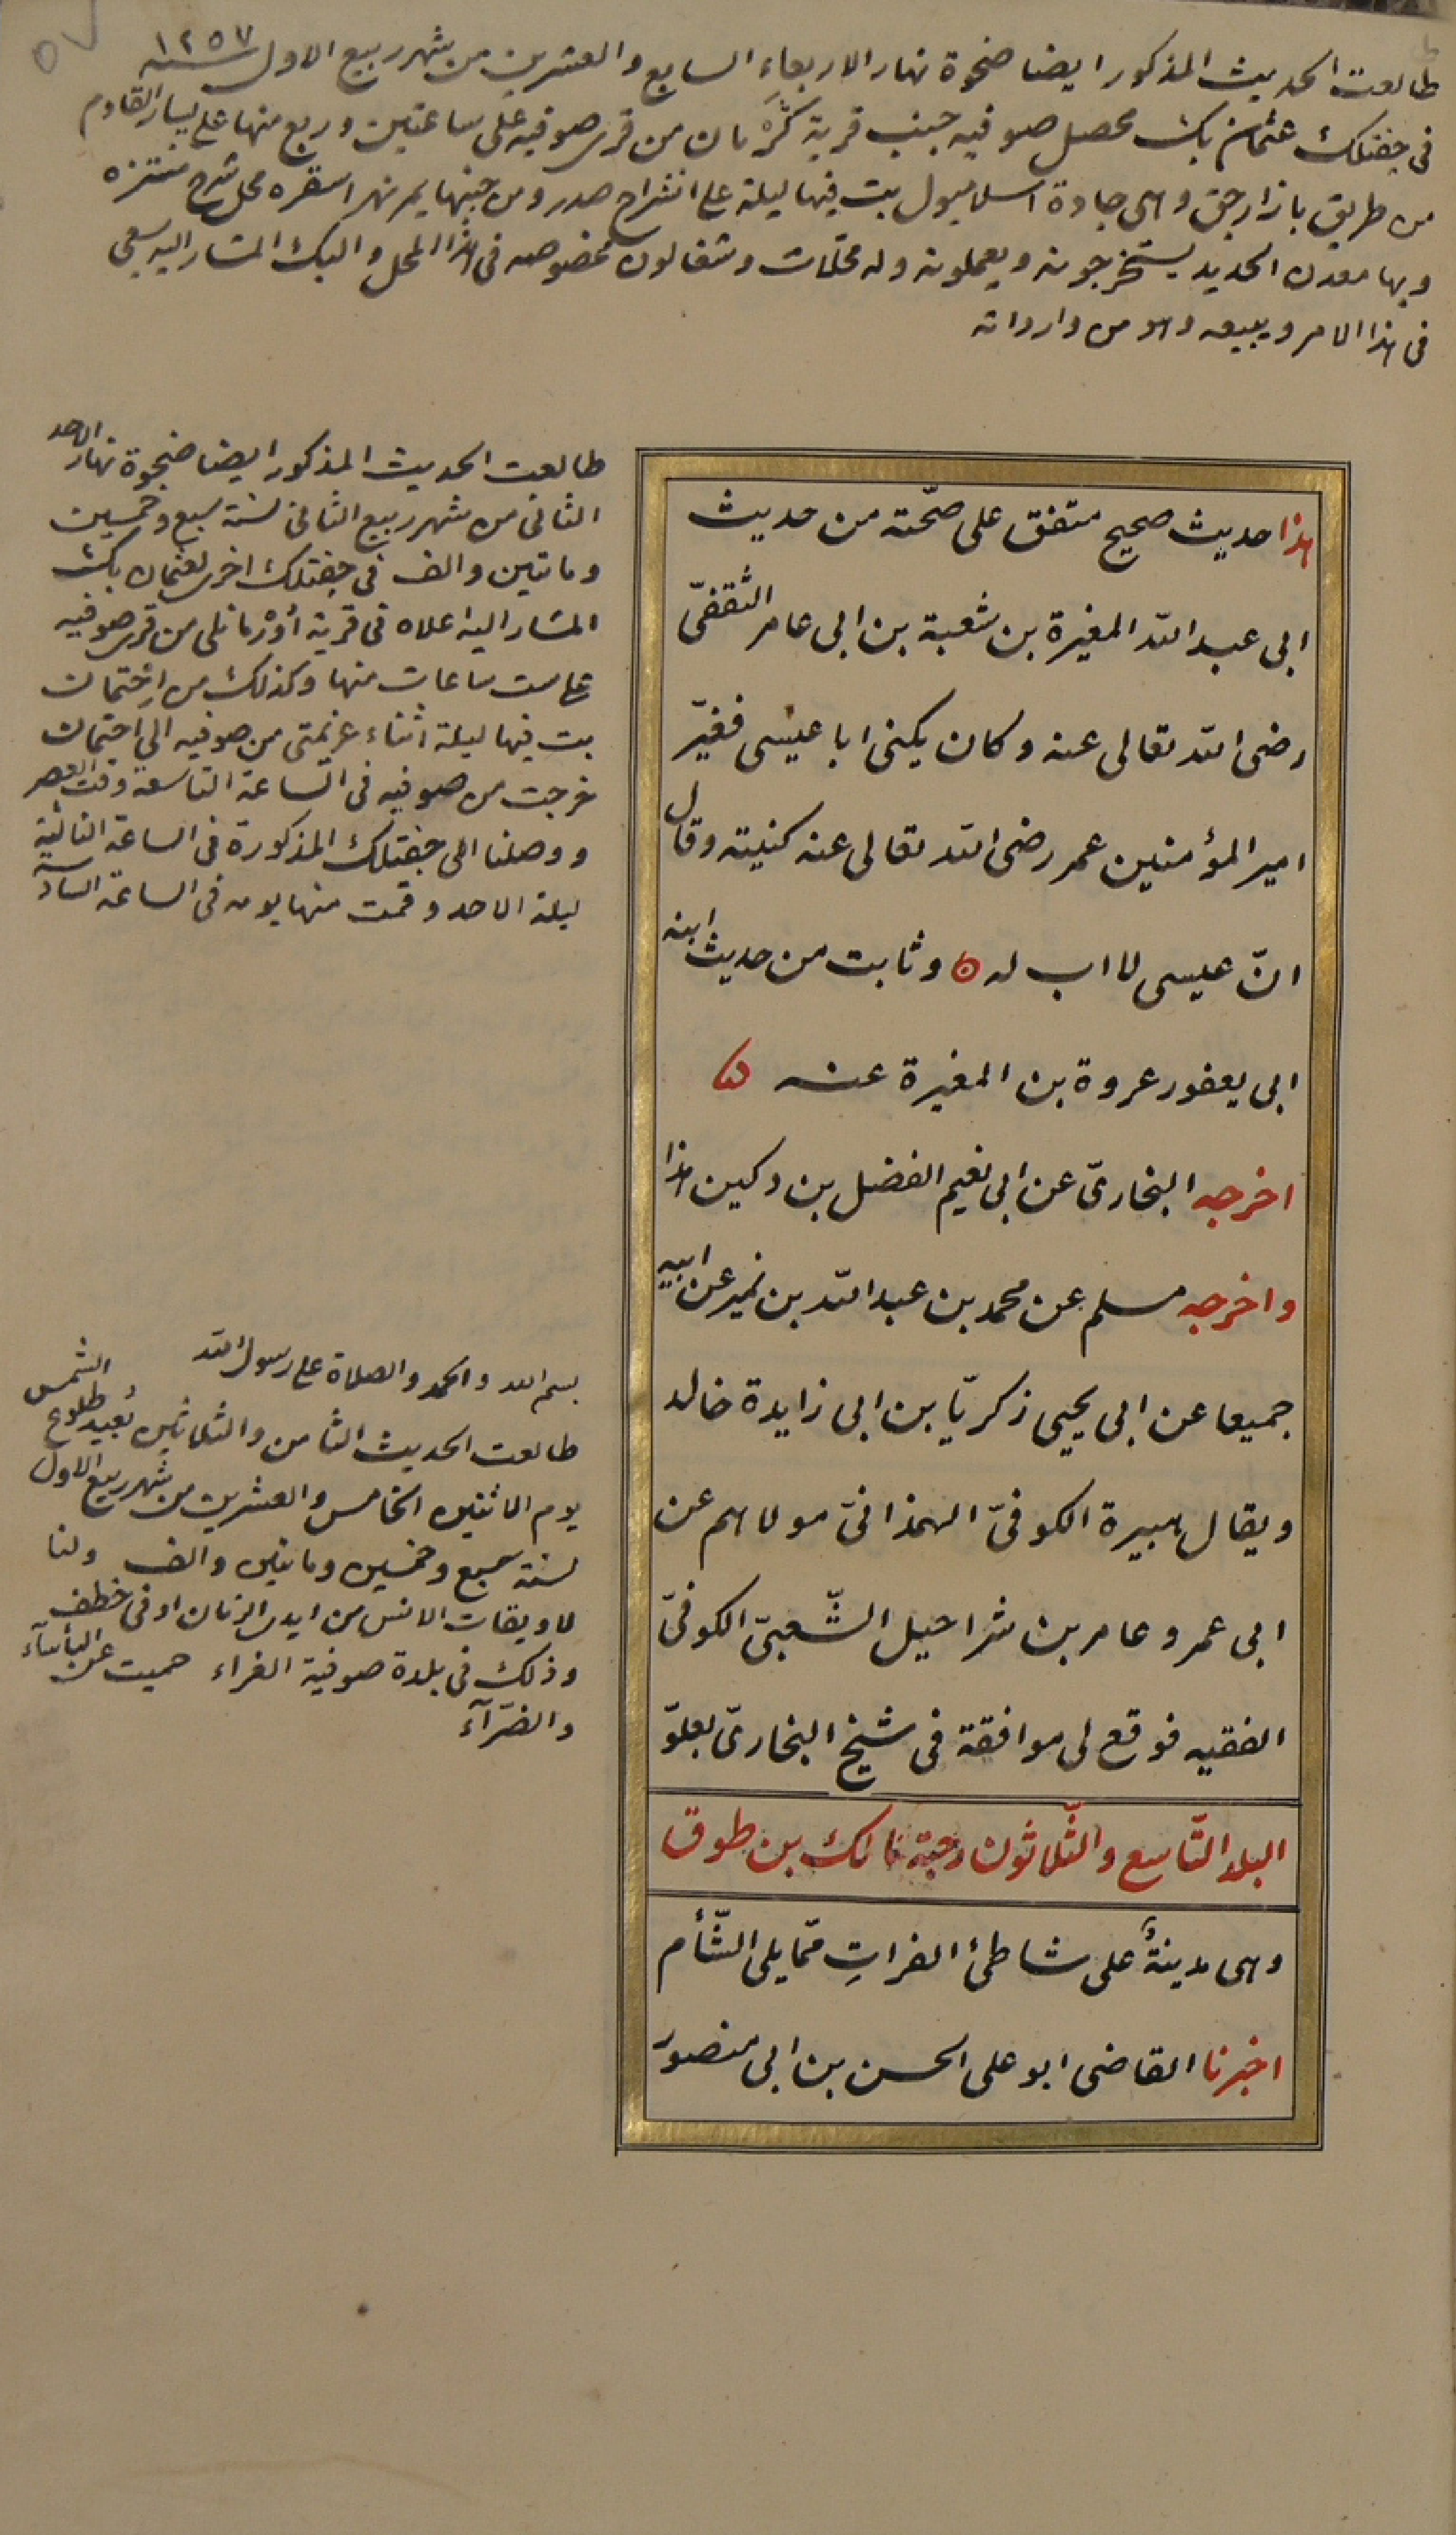 طالعت الحديث المذكور ايضا ضحوة نهار الاربعاء السابع والعشرين من شهر ربيع الاول سنة ١٢٥٧
فى جفتلك عثمان بك محصل صوفيه جنب قرية من قرى صوفيه على ساعتين وربع منها على يسار القادم
من طريق بازارجق وهى جادة اسلامبول بت فيها ليلة على انشراح صدر ومن جنبها يمر نهر اسقره محل شرح منتزه
وبها معدن الحديد يستخرجونه ويعملونه وله محلات وشغالون مخصوصه فى هذا المحل والبك المشار اليه يسعى
فى هذا الامر ويبيعه وهو من وارداته
طالعت الحديث المذكور ايضا ضحوة نهار الاحد
الثانى من شهر ربيع الثانى لسنة سبع وخمسين
ومائتين والف فى جفتلك اخرى لعثمان بك
المشار اليه اعلاه فى قرية من قرى صوفيه
على ست ساعات منها وكذلك من اختمان
بت فيها ليلة اثناء عزيمتى من صوفيه الى اختمان
خرجت من صوفيه فى الساعة التاسعة وقت العصر
ووصلنا الى جفتلك المذكورة فى الساعة الثانية
ليلة الاحد وقمت منها يومه فى الساعة السادسة
هذا حديث صحيح متفق على صحّته من حديث
ابى عبد الله المغيرة بن شعبة بن ابى عامر الثقفىّ
رضى الله تعالى عنه وكان يكنى ابا عيسى فغيّر
امير المؤمنين عمر رضى الله تعالى عنه كنيته وقال
انّ عيسى لا اب له ه وثابت من حديث ابنه
ابى يعفور عروة بن المغيرة عنه ه
اخرجه البخارىّ عن ابى نعيم الفضل بن دكين هذا
واخرجه مسلم عن محمد بن عبد الله بن نمير عن ابيه
جميعا عن ابى يحيى زكريّا بن ابى زايدة خالد
ويقال هبيرة الكوفىّ الهمذانىّ مولاهم عن
ابى عمرو عامر بن شراحيل الشّعبىّ الكوفىّ
الفقيه فوقع لى موافقة فى شيخ البخارىّ بعلوّ
البلد التّاسع والثّلاثون رحبة مالك بن طوق
وهى مدينةٌ على شاطئ الفراتِ ممّا يلى الشّأم
اخبرنا القاضى ابو على الحسن بن ابى منصور
بسم الله والحمد والصلاة على رسول الله
طالعت الحديث الثامن والثلاثين بُعيد طلوع الشمس
يوم الاثنين الخامس والعشرين من شهر ربيع الاول
لسنة سبع وخمسين ومايتين والف ولنا
لاويقات الانس من ايدى الزمان اوفى خطف
وذلك فى بلدة صوفية الغراء حميت عن البأساء
والضرّآء